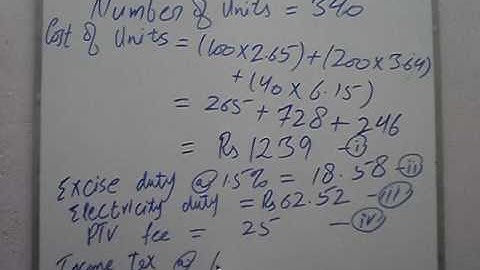 Number of Units = 340
Cost of Units = (100x2.65)+(200x3.64)
+(40x6.15)
= 265+728+246
= Rs 1239 - i
Excise duty @ 1.5% = 18.58 - ii
Electricity duty = Rs 62.52 - iii
PTV fee = 25 - iv
Income tax @